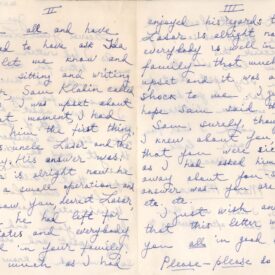 II
all and have
to have ask Ida
let me know and
sitting and writing
Sam Klatin called
I was upset about
moment, I had
him the first thing,
uncle Lazar and the
His answer was:
is alright now he
a small operation and
you, dearest Lazar,
he had left for
and everybody
in your family,
much as I had
III
enjoyed his regards
Lazar is alright now
everybody is well in
family - that much
upset and it was a
shock to me - I
hope Sam said
Sam, surely, thou
I knew about you
that you were sic
as I had asked him
away about you -
answer was - you are
etc. etc.
I just wish an
that this letter w
you all in good
Please - please do